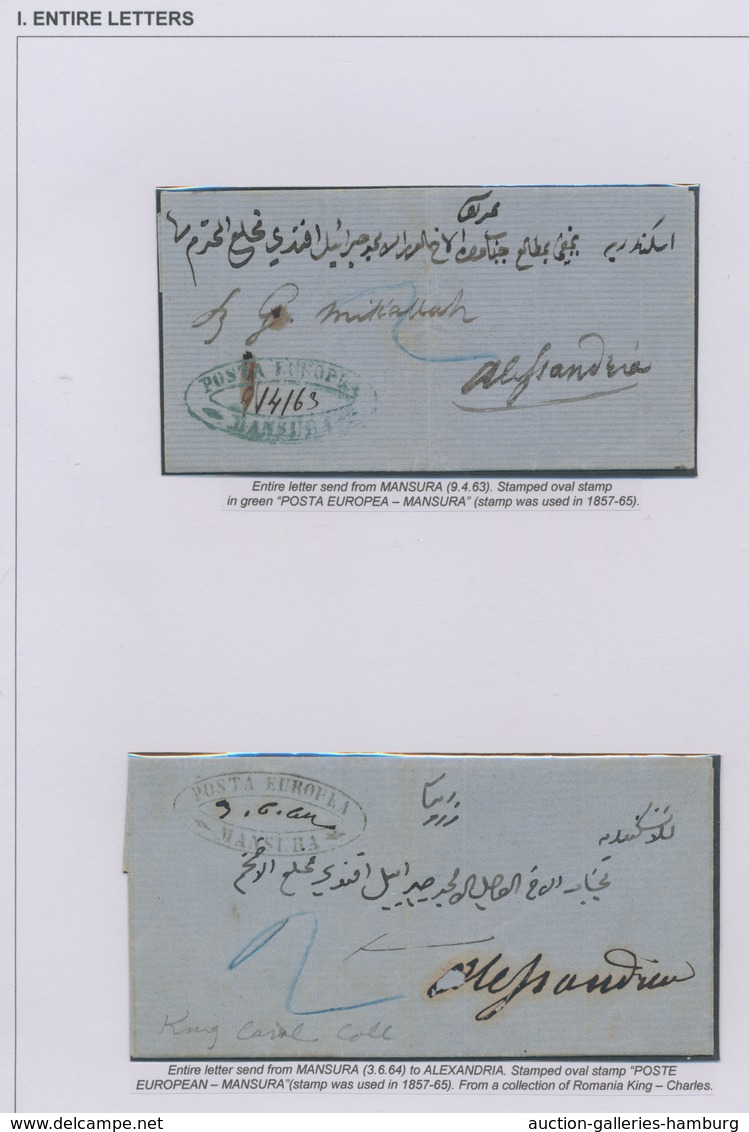 I. ENTIRE LETTERS
اسكندريه
جبرائيل افندي مخلع المحترم
G. Mikallah
Alessandria
POSTA EUROPEA
9/4/63
MANSURA
2
Entire letter send from MANSURA (9.4.63). Stamped oval stamp
in green “POSTA EUROPEA – MANSURA” (stamp was used in 1857-65).
POSTA EUROPEA
3.6.64
MANSURA
للاسكندريه
جبرائيل افندي مخلع الافخم
2
Alessandria
King Carol Coll
Entire letter send from MANSURA (3.6.64) to ALEXANDRIA. Stamped oval stamp “POSTE
EUROPEAN – MANSURA”(stamp was used in 1857-65). From a collection of Romania King – Charles.
auction-galleries-hamburg